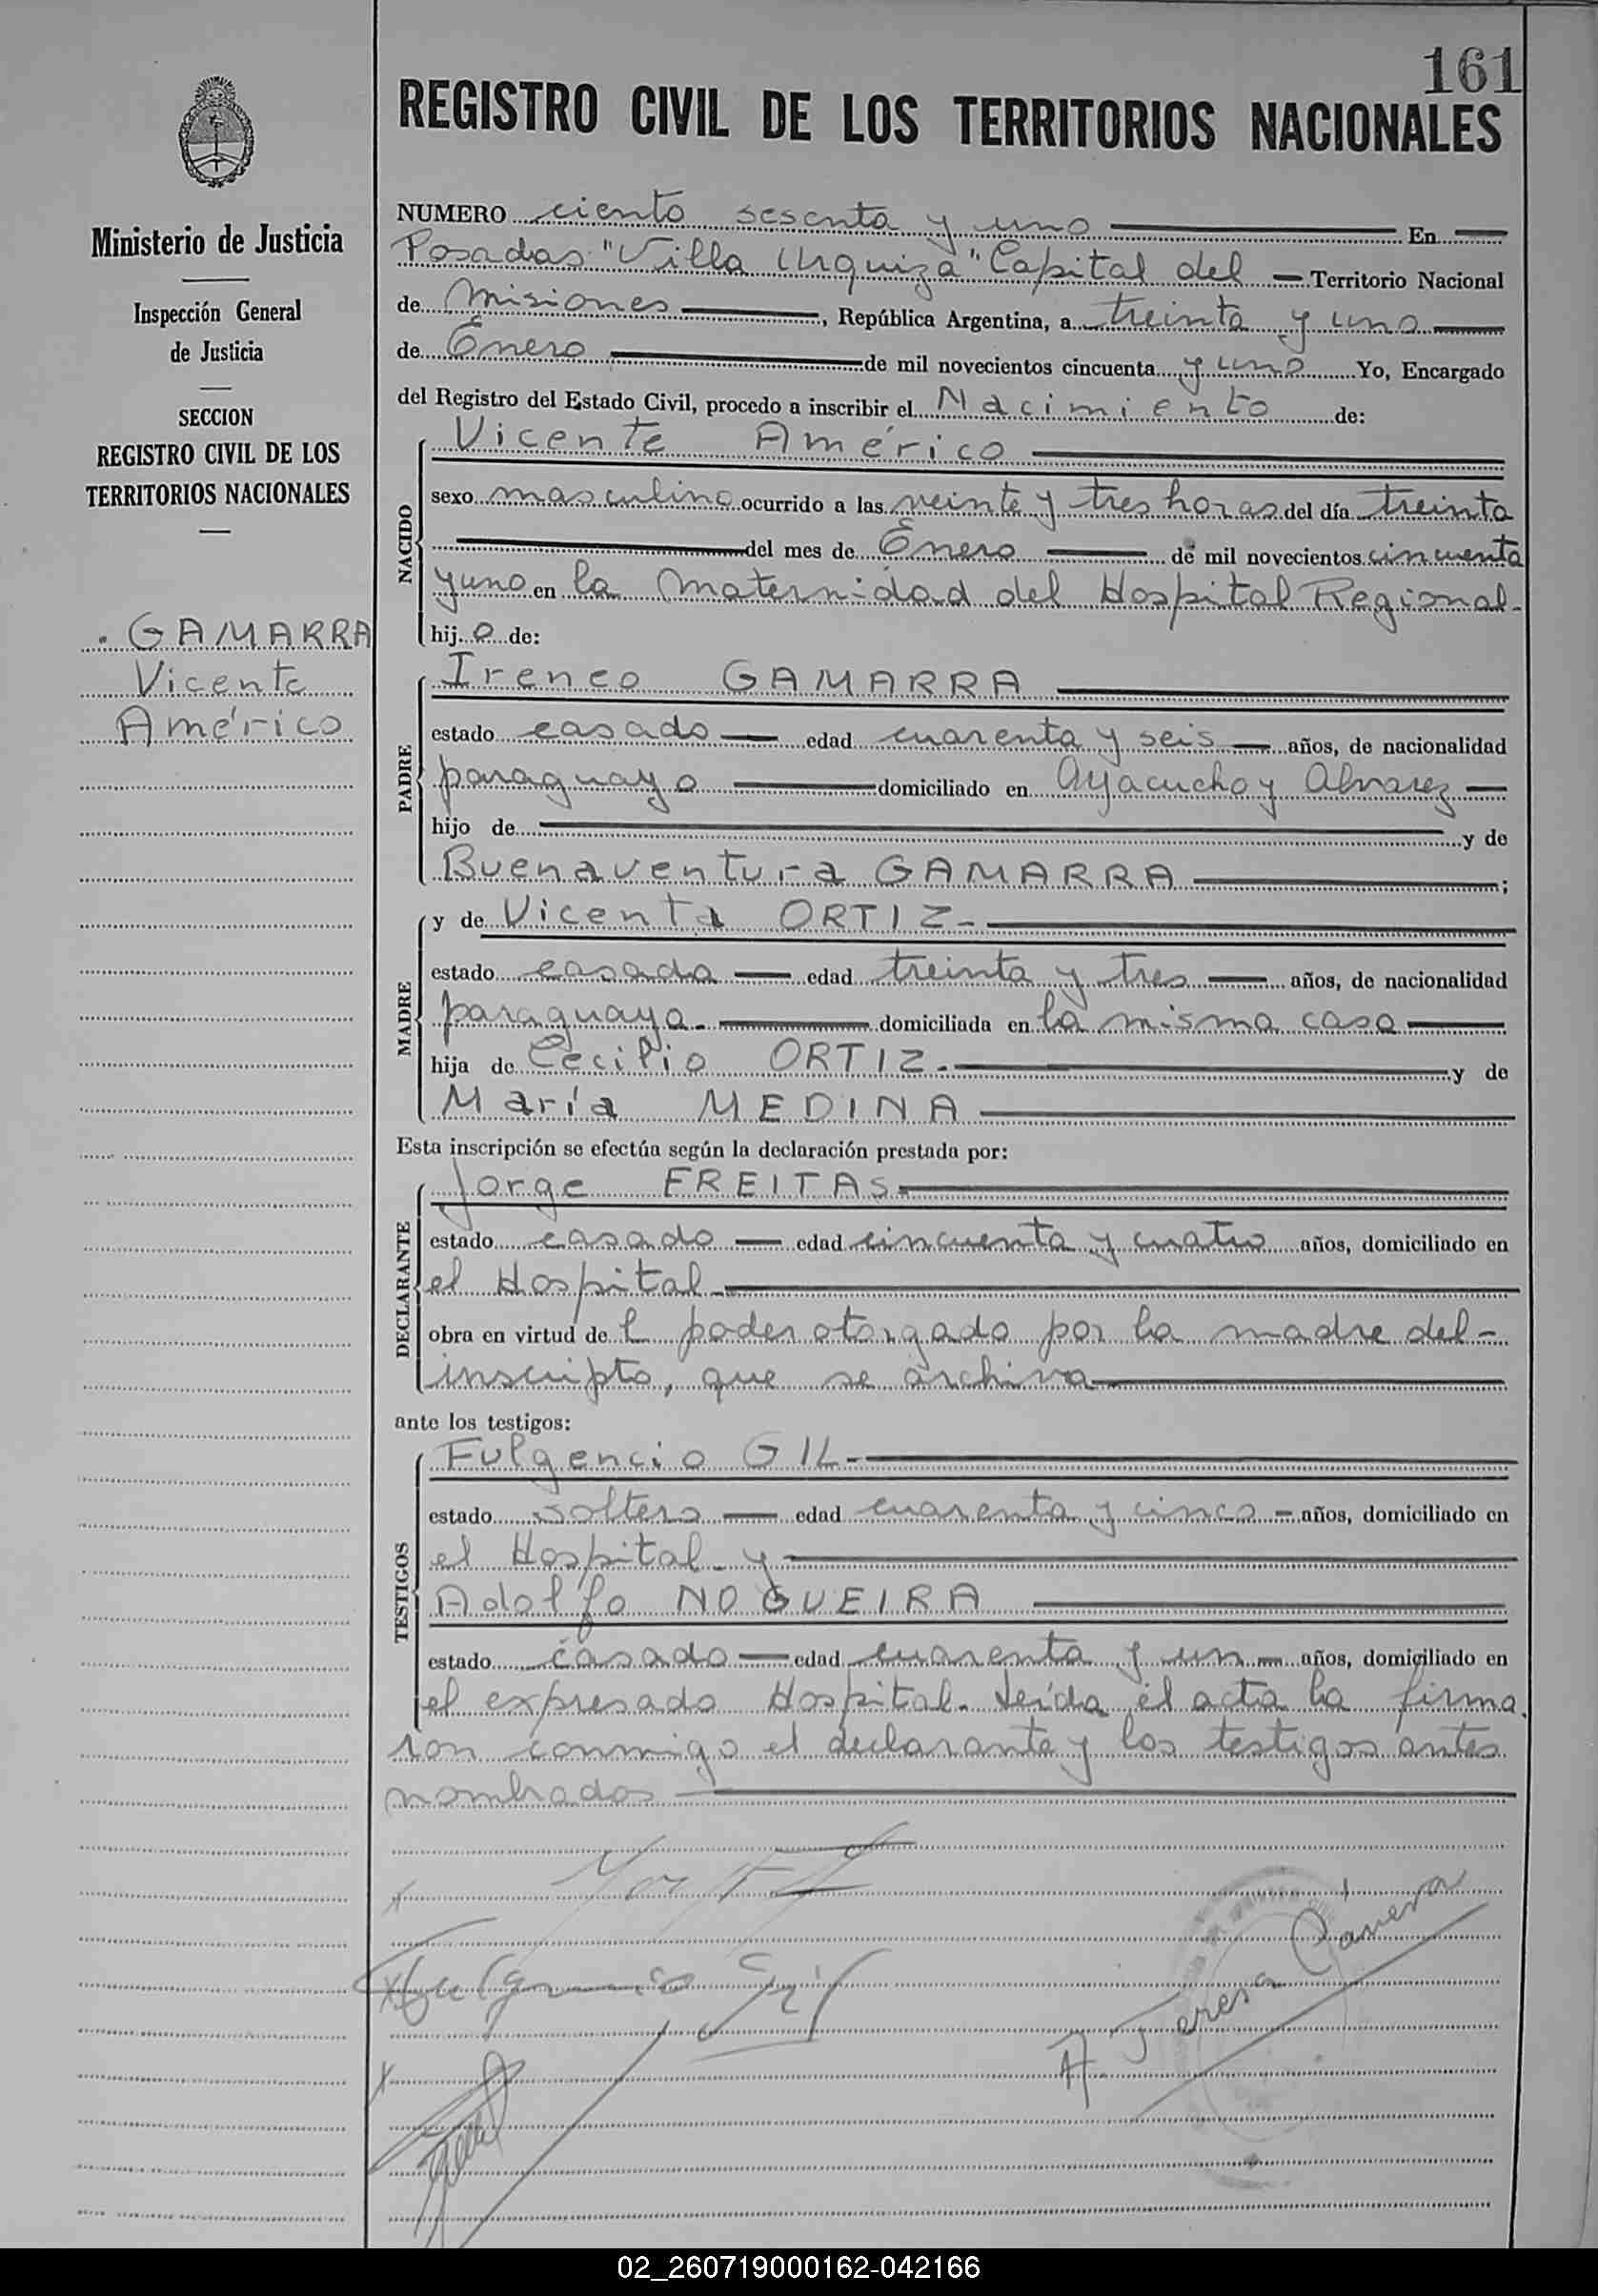 161
REGISTRO CIVIL DE LOS TERRITORIOS NACIONALES
Ministerio de Justicia
Inspección General
de Justicia
SECCION
REGISTRO CIVIL DE LOS
TERRITORIOS NACIONALES
GAMARRA
Vicente
Américo
NUMERO ciento sesenta y uno En
Posadas "Villa Urquiza" Capital del Territorio Nacional
de Misiones, República Argentina, a treinta y uno
de Enero de mil novecientos cincuenta y uno Yo, Encargado
del Registro del Estado Civil, procedo a inscribir el Nacimiento de:
NACIDO
Vicente Américo
sexo masculino ocurrido a las veinte y tres horas del día treinta
del mes de Enero de mil novecientos cincuenta
y uno en la Maternidad del Hospital Regional-
hijo de:
PADRE
Ireneo GAMARRA
estado casado edad cuarenta y seis años, de nacionalidad
paraguayo domiciliado en Ayacucho y Alvarez
hijo de y de
Buenaventura GAMARRA;
MADRE
y de Vicenta ORTIZ-
estado casada edad treinta y tres años, de nacionalidad
paraguaya- domiciliada en la misma casa
hija de Cecilio ORTIZ- y de
María MEDINA
Esta inscripción se efectúa según la declaración prestada por:
DECLARANTE
Jorge FREITAS-
estado casado edad cincuenta y cuatro años, domiciliado en
el Hospital-
obra en virtud del poder otorgado por la madre del-
inscripto, que se archiva
ante los testigos:
TESTIGOS
Fulgencio GIL-
estado soltero edad cuarenta y cinco años, domiciliado en
el Hospital- y
Adolfo NOGUEIRA
estado casado edad cuarenta y un años, domiciliado en
el expresado Hospital- Leída el acta la firma
ron conmigo el declarante y los testigos antes
nombrados
Fulgencio Gil
A. Teresa
02_260719000162-042166